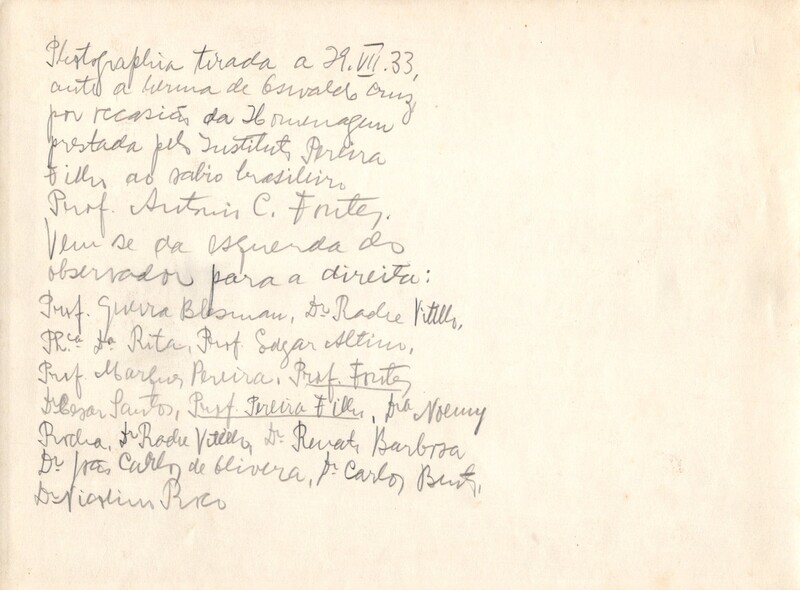 Photographia tirada a 29.VII.33,
ante a herma de Oswaldo Cruz,
por occasião da Homenagem
prestada pelo Instituto Pereira
Filho ao sabio brasileiro
Prof. Antonio C. Fontes.
Vem se da esquerda do
observador para a direita:
Prof. Guerra Blesman, Dr Vitello,
Phca Da Rita, Prof. Edgar Altino,
Prof Marques Pereira, Prof. Fontes,
Dr Cesar Santos, Prof. Pereira Filho, Dra Noemy
Rocha, Dr Vitello, Dr. Renato Barbosa
Dr João Carlos de Oliveira, Dr Carlos Bento,
Dr Nicolino Rocco